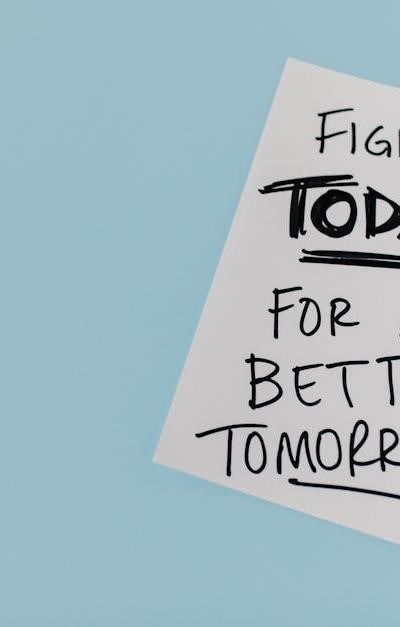 FIG
TODA
FOR
BETT
TOMORR